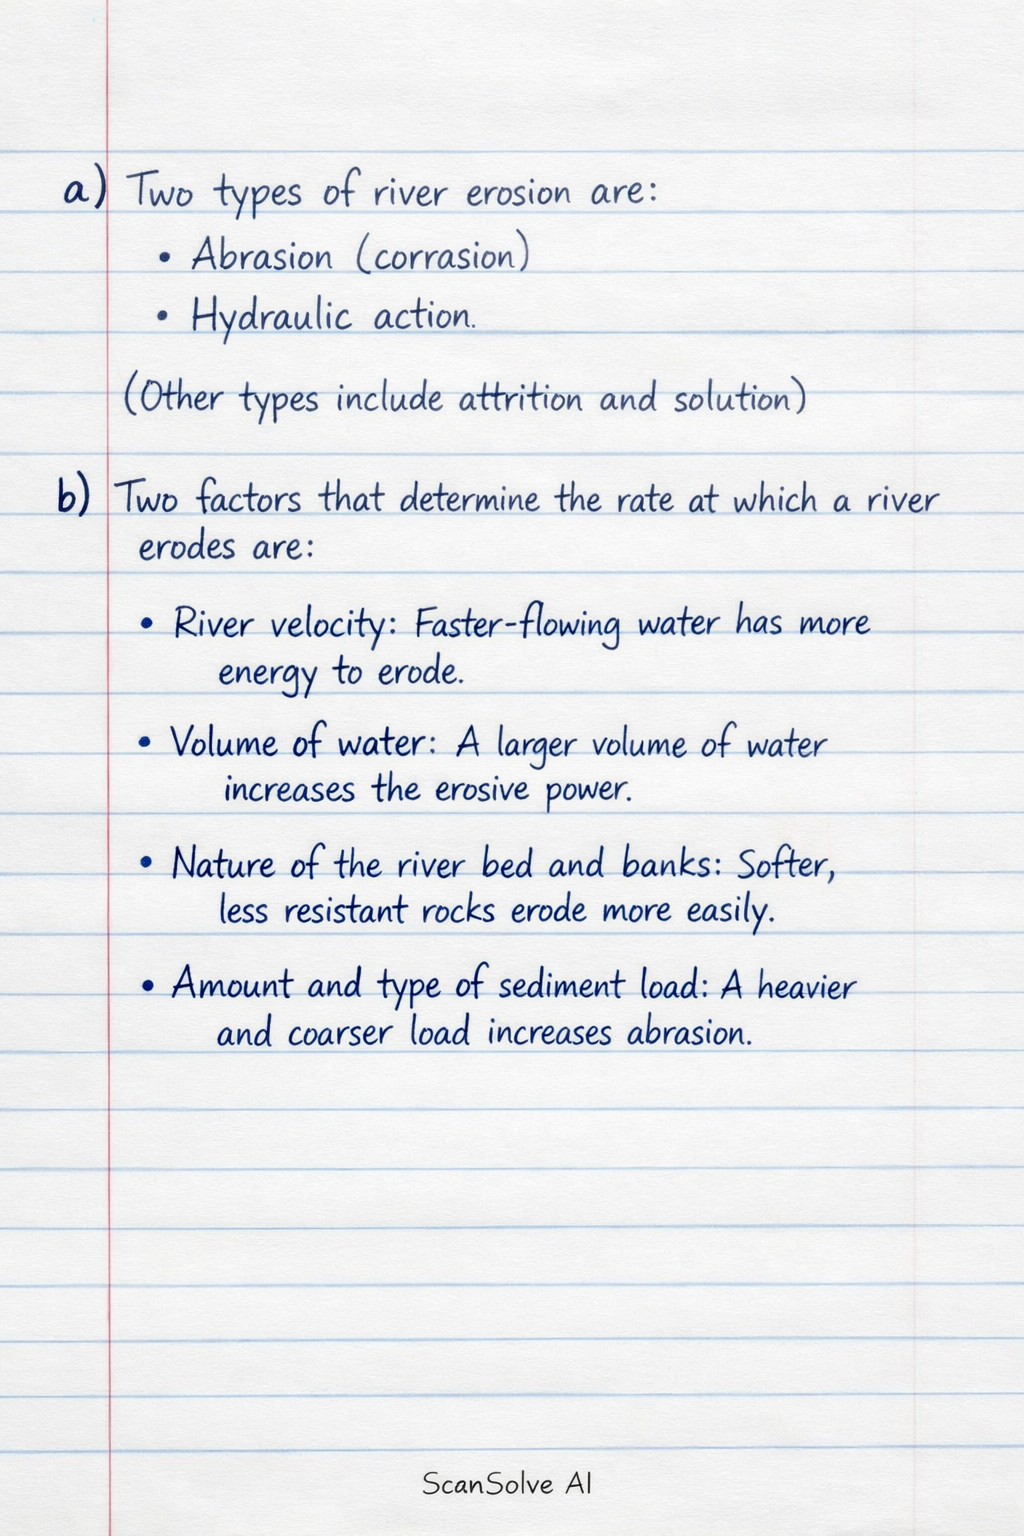 a) Two types of river erosion are:
• Abrasion (corrasion)
• Hydraulic action.
(Other types include attrition and solution)
b) Two factors that determine the rate at which a river
erodes are:
• River velocity: Faster-flowing water has more
energy to erode.
• Volume of water: A larger volume of water
increases the erosive power.
• Nature of the river bed and banks: Softer,
less resistant rocks erode more easily.
• Amount and type of sediment load: A heavier
and coarser load increases abrasion.
ScanSolve AI